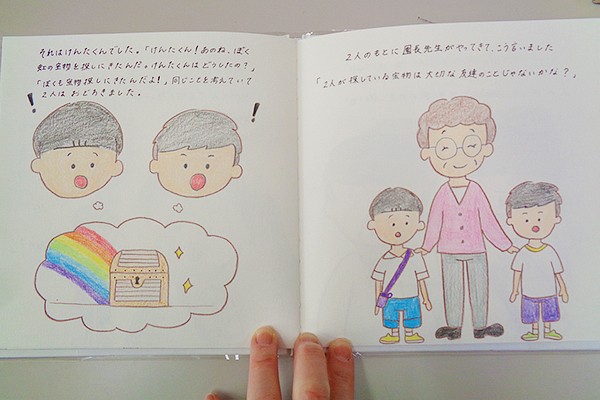 それはけんたくんでした。「けんたくん！あのね、ぼく
虹の宝物を探しにきたんだ。けんたくんはどうしたの？」
「ぼくも宝物探しにきたんだよ！」同じことを考えていて
2人はおどろきました。
!
!
2人のもとに園長先生がやってきて、こう言いました
「2人が探している宝物は大切な友達のことじゃないかな？」